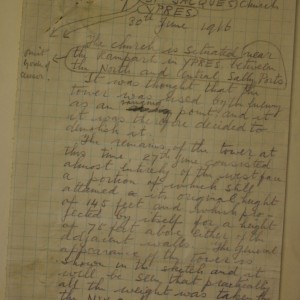 ST JACQUES Church
YPRES
30th June 1916
The church is situated near
the rampart in YPRES between
the North and Central Sally Ports.
It was thought that the
tower was used by the enemy
as an ranging point and it
it was therefore decided to
demolish it.
The remains of the tower at
this time 27th June consisted
almost entirely of the west face
a portion of which still
attained its original height
of 145 feet and which pro-
jected by itself for a height
of 75 feet above either of the
adjacent walls. The general
appearance of the tower is
shown in the sketch and it
will be seen that practically
all the weight was taken by
the